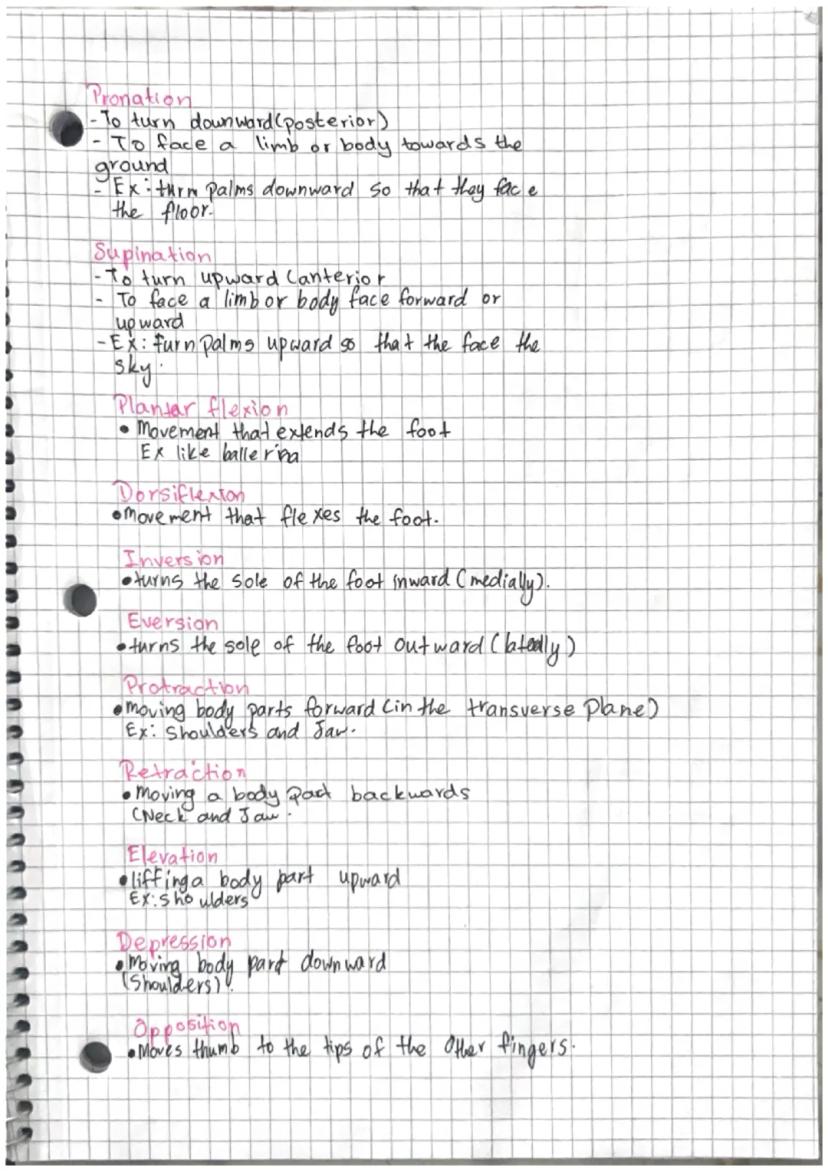 Pronation
- To turn downward (posterior)
- To face a limb or body towards the
ground
- Ex: turn palms downward so that they face
the floor.
Supination
- To turn upward (anterior
- To face a limb or body face forward or
upward
- Ex: turn palms upward so that the face the
sky.
Plantar flexion
• Movement that extends the foot
Ex like ballerina
Dorsiflexion
• movement that flexes the foot.
Inversion
• turns the sole of the foot inward (medially).
Eversion
• turns the sole of the foot outward (
Protraction
• moving body parts forward (in the transverse plane)
Ex: Shoulders and Jaw.
Retraction
• Moving a body part backwards
(Neck and Jaw.
Elevation
• lifting a body part upward
Ex: shoulders
Depression
• Moving body part downward
(Shoulders).
Opposition
• Moves thumb to the tips of the other fingers.